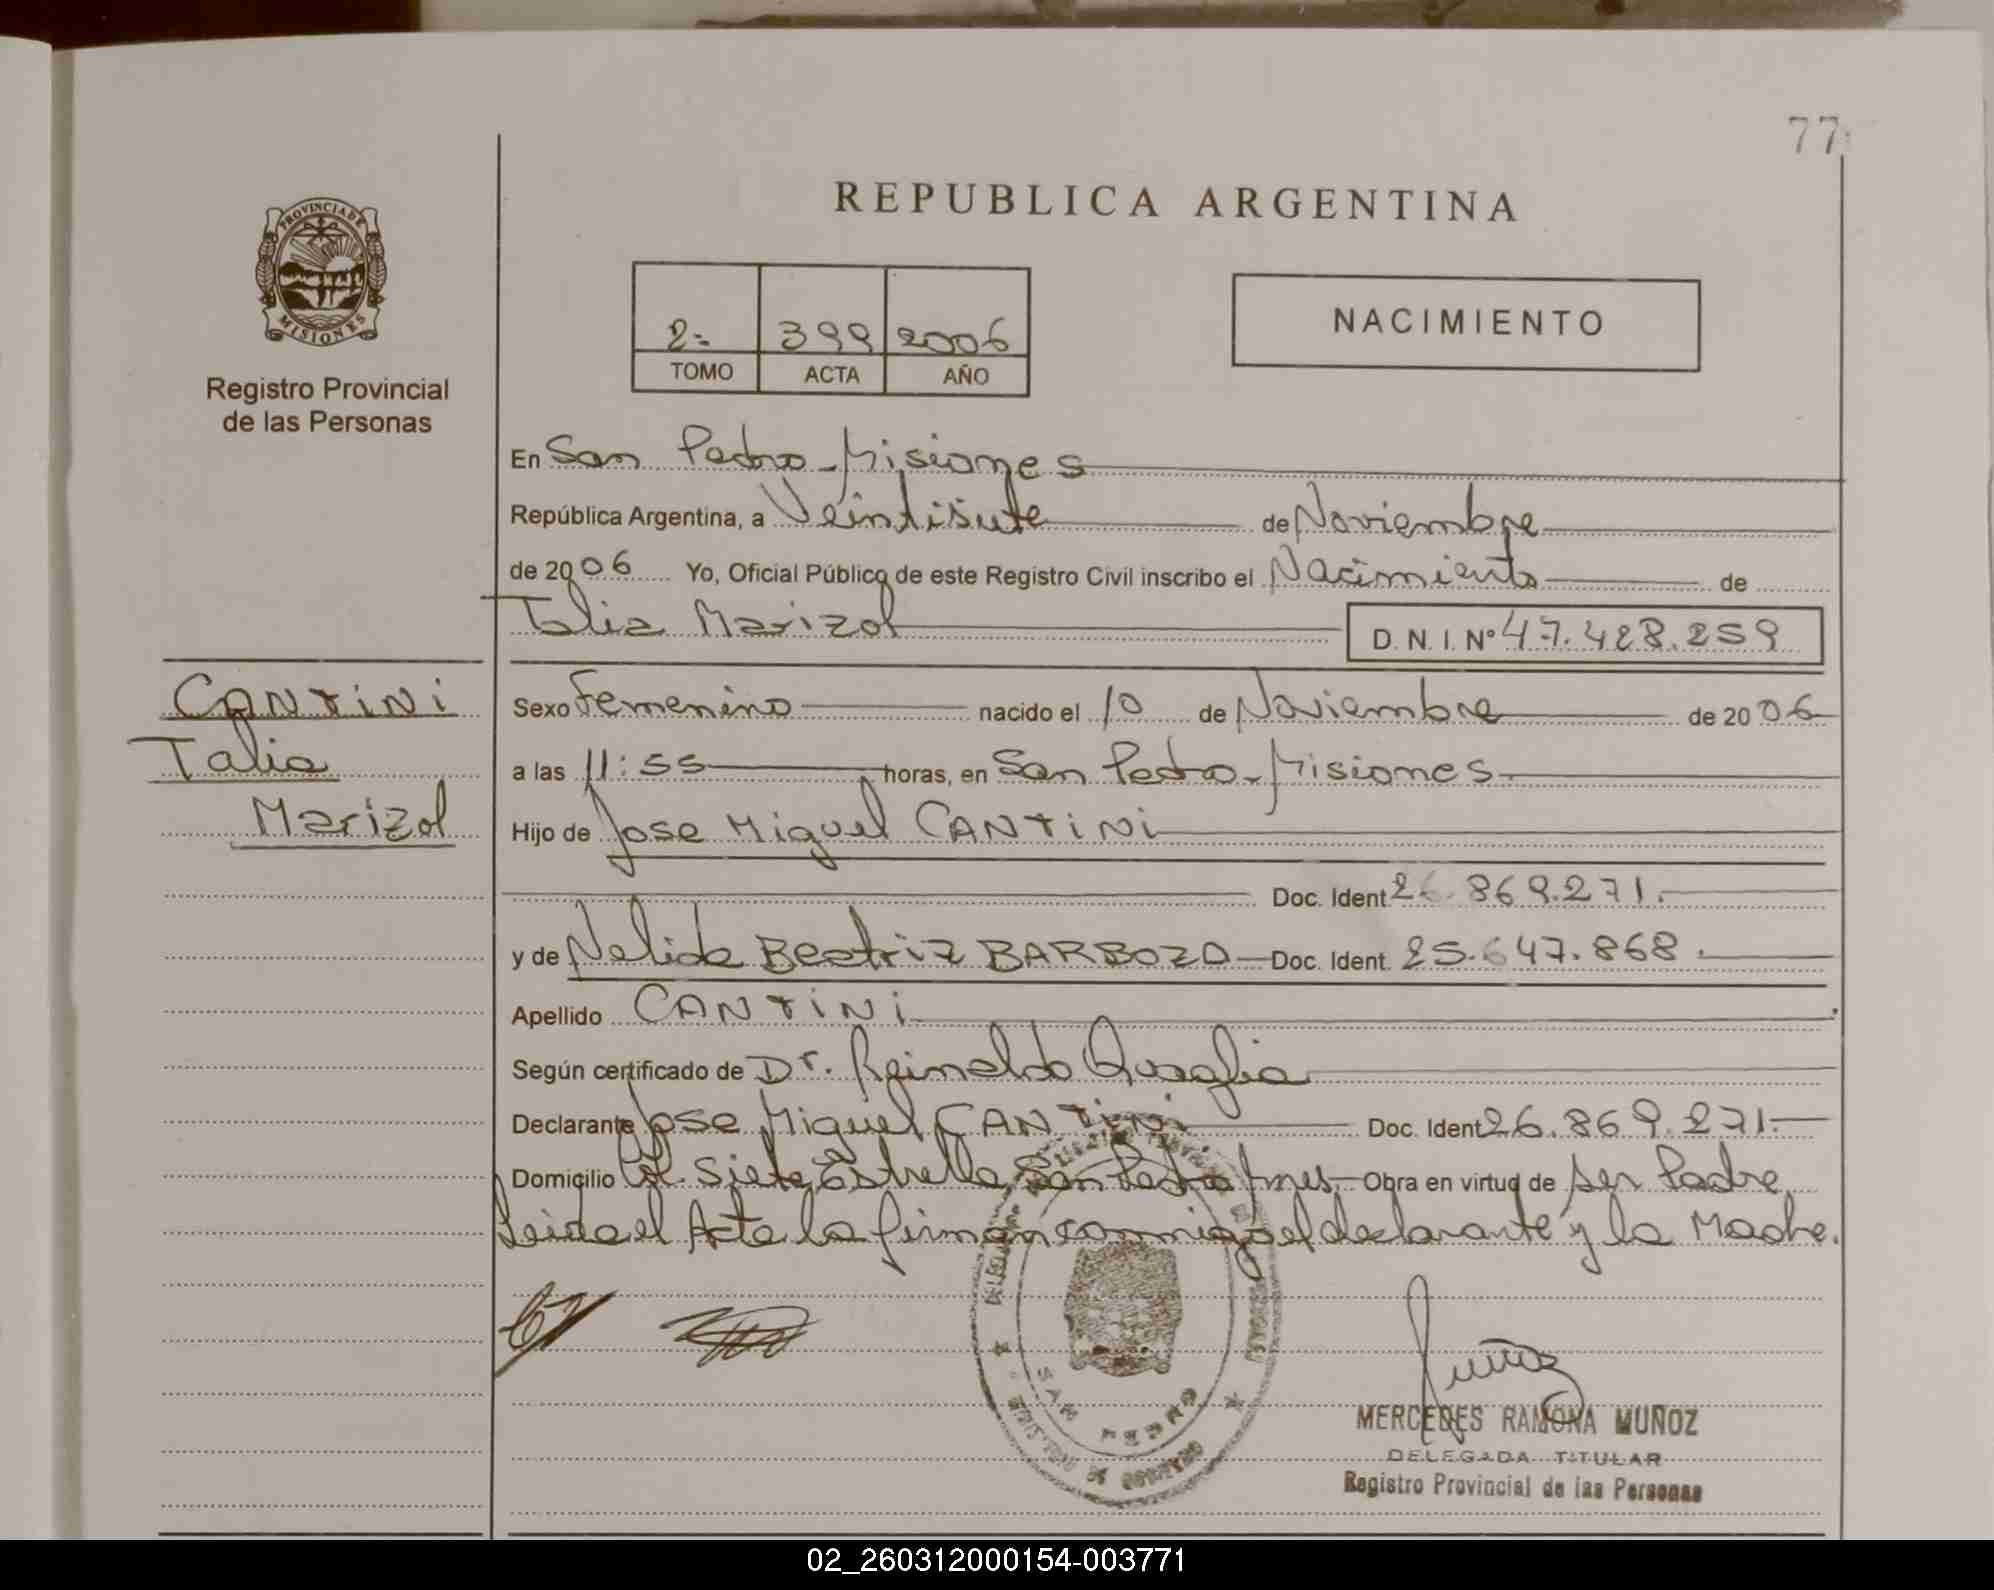 77
PROVINCIA DE
MISIONES
Registro Provincial
de las Personas
REPUBLICA ARGENTINA
2- 399 2006
TOMO ACTA AÑO
NACIMIENTO
En San Pedro - Misiones
República Argentina, a Veintisiete de Noviembre
de 2006 Yo, Oficial Público de este Registro Civil inscribo el Nacimiento de
Talia Marizol D.N.I. Nº 47.428.259
CANTiNi
Talia
Marizol
Sexo Femenino nacido el 10 de Noviembre de 2006
a las 11:55 horas, en San Pedro - Misiones
Hijo de Jose Miguel CANTiNi
Doc. Ident 26.869.271.
y de Nelida Beatriz BARBOZA Doc. Ident. 25.647.868.
Apellido CANTiNi
Según certificado de Dr. Reinaldo Quaglia
Declarante Jose Miguel CANTiNi Doc. Ident 26.869.271.
Domicilio Col. Siete Estrella San Pedro Mnes. Obra en virtud de ser Padre
Leida el Acta la firman conmigo el declarante y la Madre.
SAN PEDRO
Muñoz
MERCEDES RAMONA MUÑOZ
DELEGADA TITULAR
Registro Provincial de las Personas
02_260312000154-003771